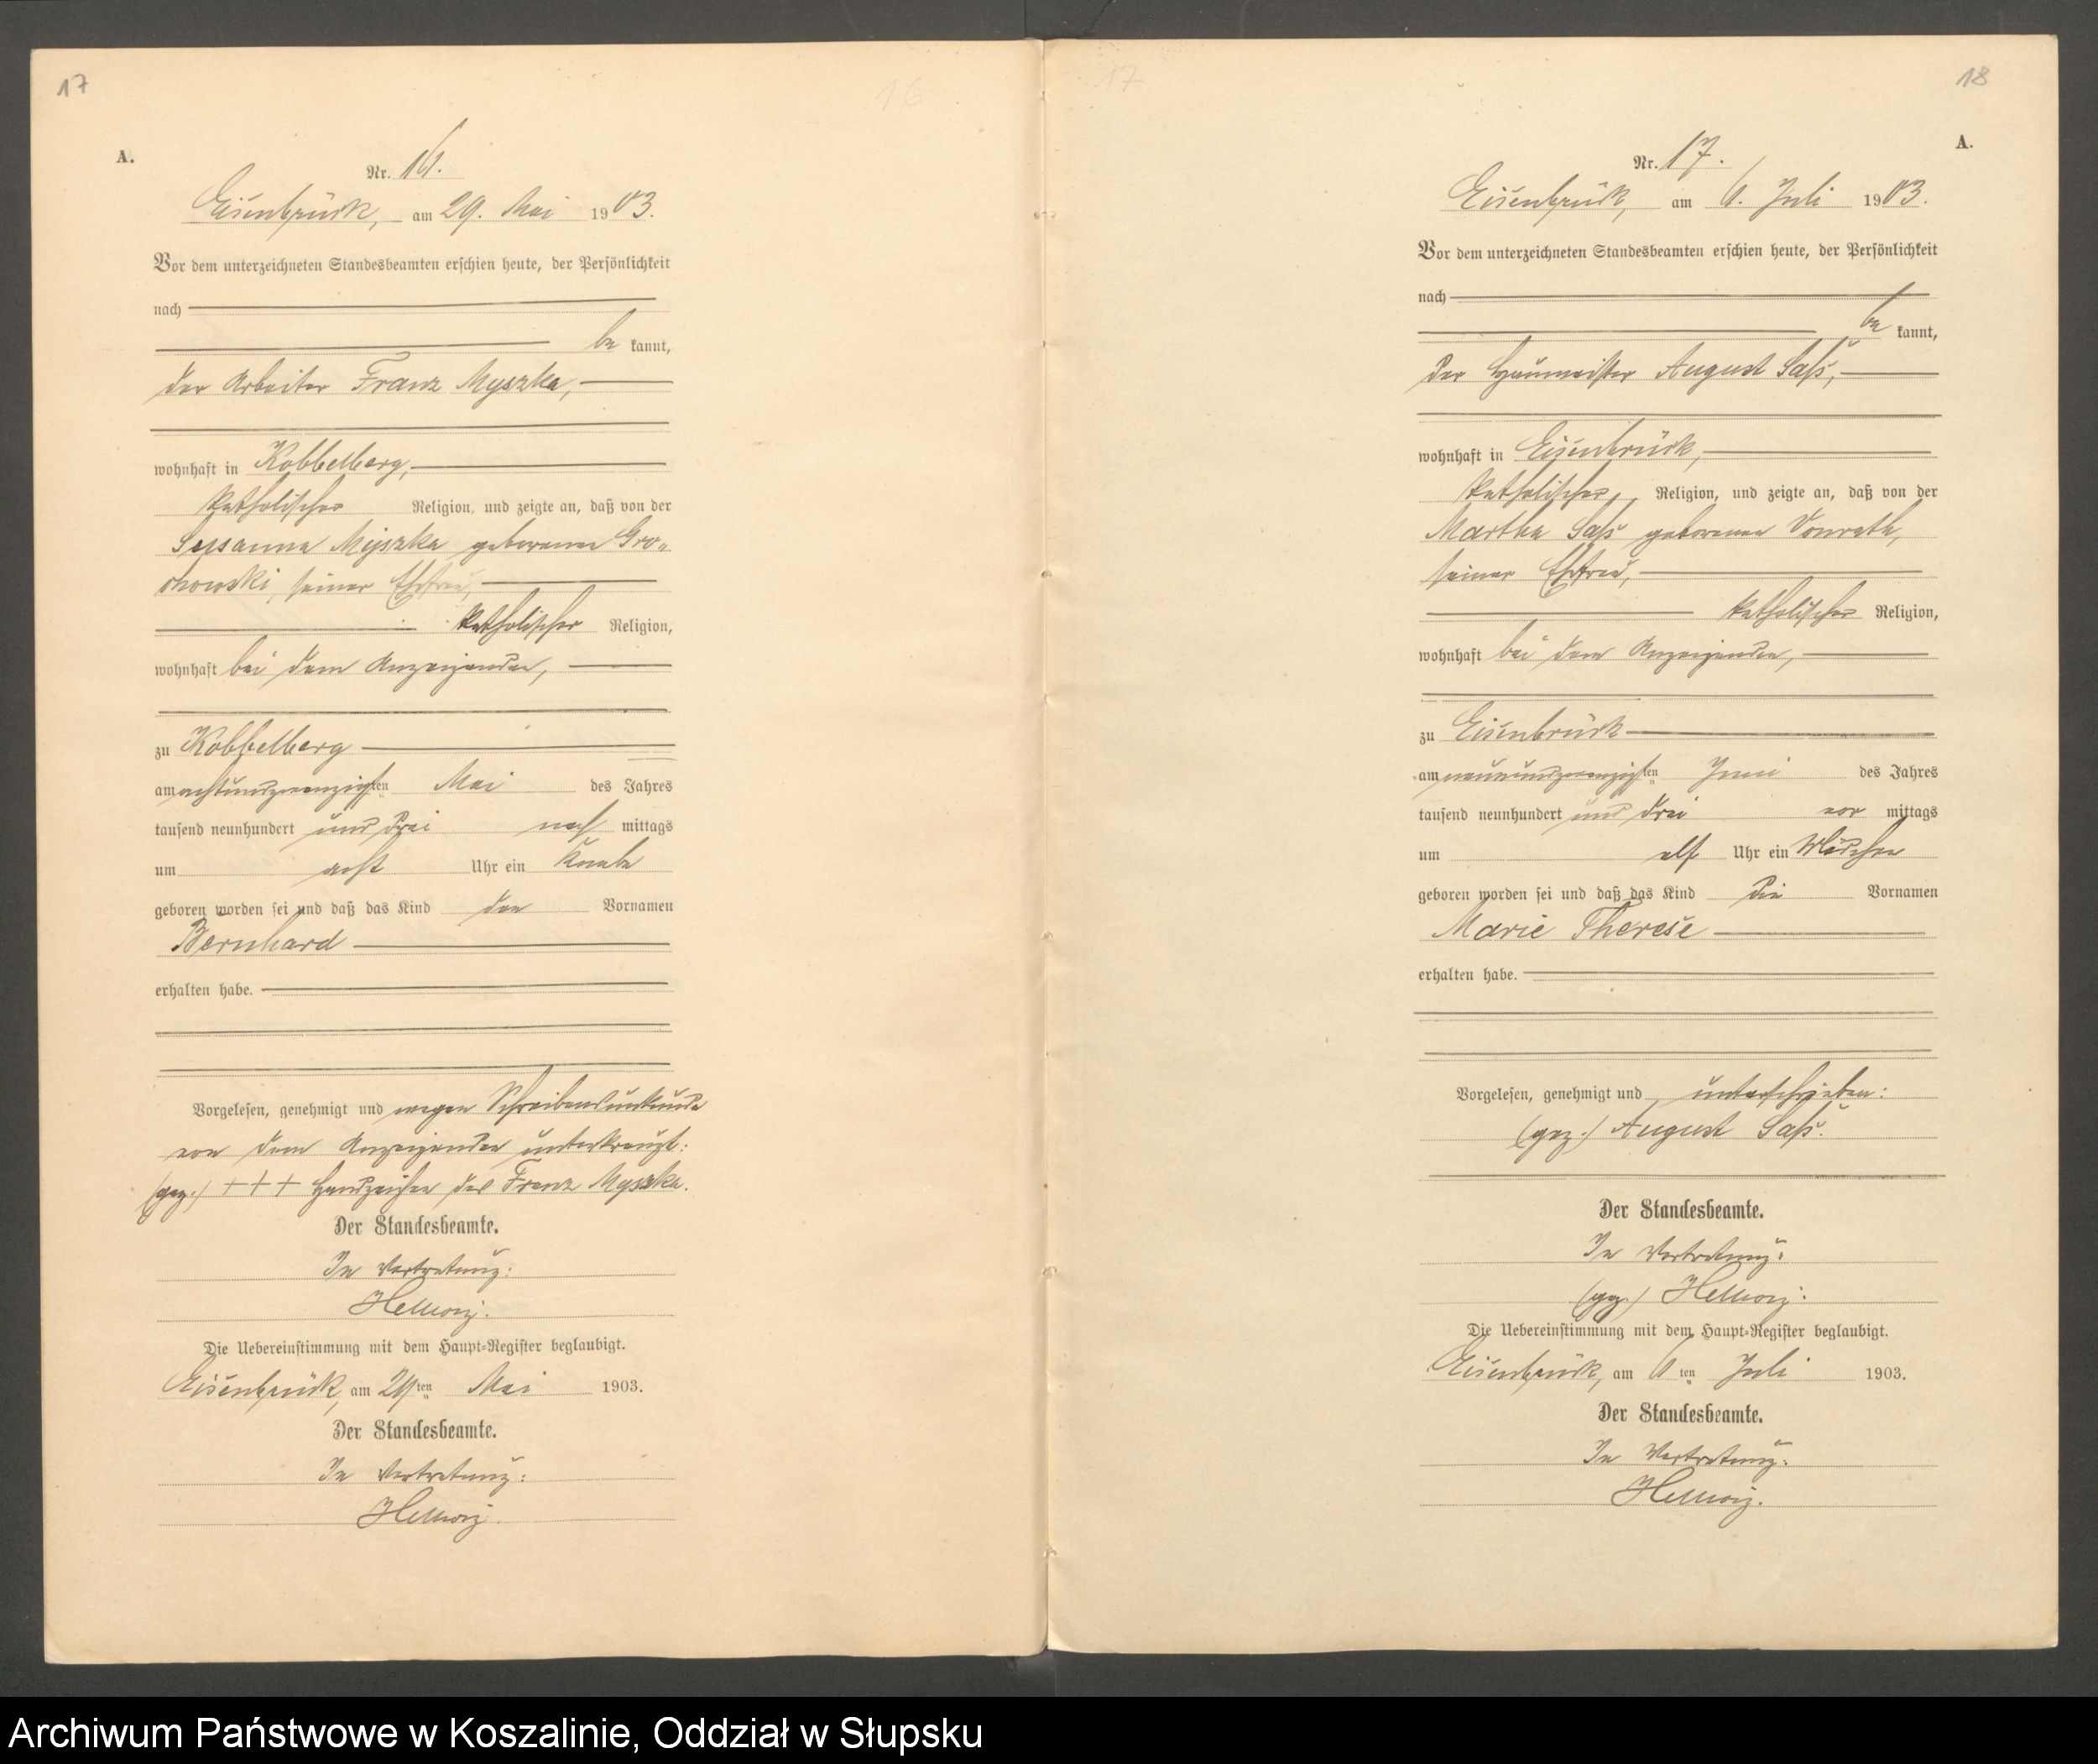 17
16
A.
Nr. 16.
Eisenbrück, am 29. Mai 1903.
Vor dem unterzeichneten Standesbeamten erschien heute, der Persönlichkeit
nach
be kannt,
der Arbeiter Franz Myszka,
wohnhaft in Kobbelberg,
katholischer Religion, und zeigte an, daß von der
Susanna Myszka geborenen Gro-
chowski, seiner Ehefrau,
katholischer Religion,
wohnhaft bei dem Anzeigenden,
zu Kobbelberg
am achtundzwanzigsten Mai des Jahres
tausend neunhundert und drei nach mittags
um acht Uhr ein Knabe
geboren worden sei und daß das Kind den Vornamen
Bernhard
erhalten habe.
Vorgelesen, genehmigt und wegen Schreibensunkunde
von dem Anzeigenden unterkreuzt:
(gez.) +++ Handzeichen des Franz Myszka.
Der Standesbeamte.
In Vertretung:
Hellwig.
Die Uebereinstimmung mit dem Haupt-Register beglaubigt.
Eisenbrück, am 29ten Mai 1903.
Der Standesbeamte.
In Vertretung:
Hellwig.
17
18
A.
Nr. 17.
Eisenbrück, am 6. Juli 1903.
Vor dem unterzeichneten Standesbeamten erschien heute, der Persönlichkeit
nach
be kannt,
der Haumeister August Saß,
wohnhaft in Eisenbrück,
katholischer Religion, und zeigte an, daß von der
Martha Saß geborenen Vonrath,
seiner Ehefrau,
katholischer Religion,
wohnhaft bei dem Anzeigenden,
zu Eisenbrück
am neunundzwanzigsten Juni des Jahres
tausend neunhundert und drei vor mittags
um elf Uhr ein Mädchen
geboren worden sei und daß das Kind die Vornamen
Marie Therese
erhalten habe.
Vorgelesen, genehmigt und unterschrieben:
(gez.) August Saß.
Der Standesbeamte.
In Vertretung:
(gez.) Hellwig.
Die Uebereinstimmung mit dem Haupt-Register beglaubigt.
Eisenbrück, am 6ten Juli 1903.
Der Standesbeamte.
In Vertretung:
Hellwig.
Archiwum Państwowe w Koszalinie, Oddział w Słupsku